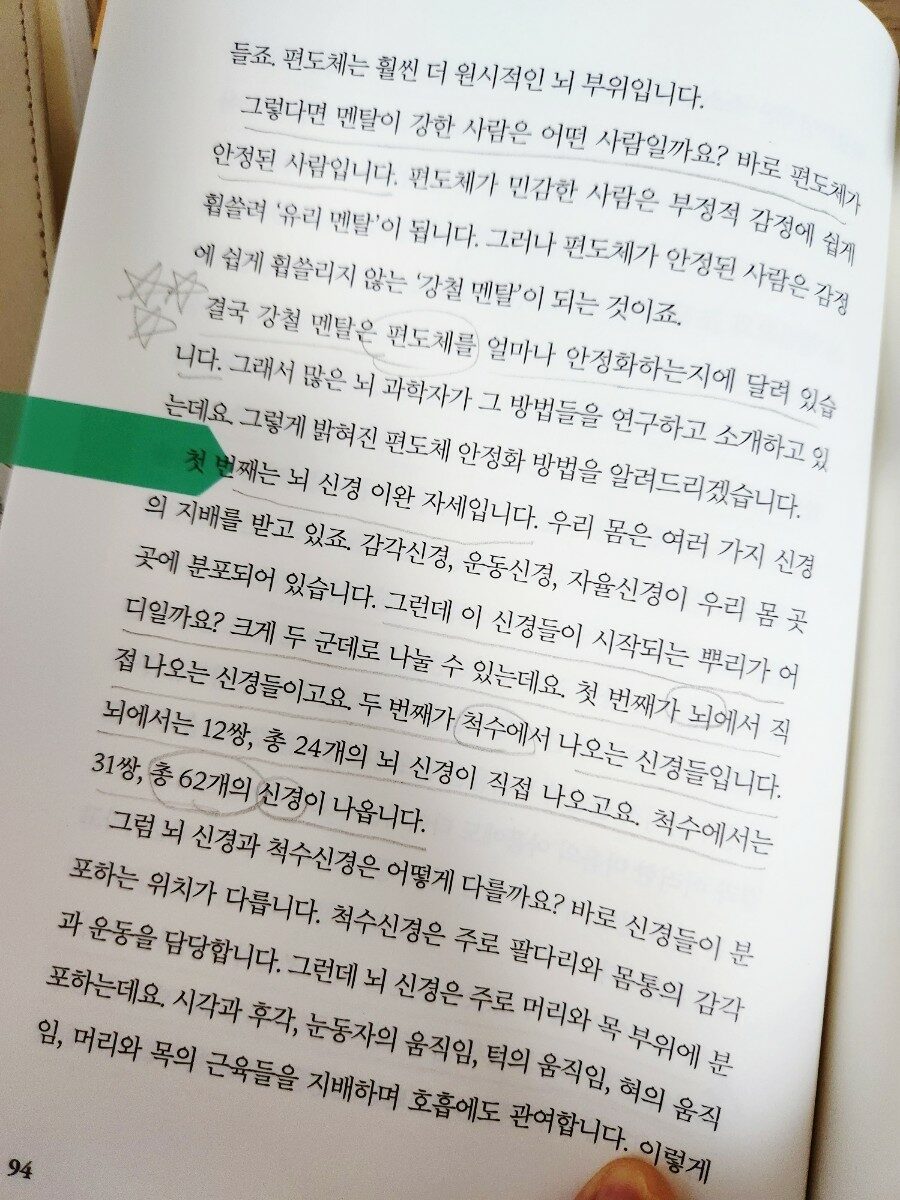 들죠. 편도체는 훨씬 더 원시적인 뇌 부위입니다.
그렇다면 멘탈이 강한 사람은 어떤 사람일까요? 바로 편도체가
안정된 사람입니다. 편도체가 민감한 사람은 부정적 감정에 쉽게
휩쓸려 ‘유리 멘탈’이 됩니다. 그러나 편도체가 안정된 사람은 감정
에 쉽게 휩쓸리지 않는 ‘강철 멘탈’이 되는 것이죠.
결국 강철 멘탈은 편도체를 얼마나 안정화하는지에 달려 있습
니다. 그래서 많은 뇌 과학자가 그 방법들을 연구하고 소개하고 있
는데요. 그렇게 밝혀진 편도체 안정화 방법을 알려드리겠습니다.
첫 번째는 뇌 신경 이완 자세입니다. 우리 몸은 여러 가지 신경
의 지배를 받고 있죠. 감각신경, 운동신경, 자율신경이 우리 몸 곳
곳에 분포되어 있습니다. 그런데 이 신경들이 시작되는 뿌리가 어
디일까요? 크게 두 군데로 나눌 수 있는데요. 첫 번째가 뇌에서 직
접 나오는 신경들이고요. 두 번째가 척수에서 나오는 신경들입니다.
뇌에서는 12쌍, 총 24개의 뇌 신경이 직접 나오고요. 척수에서는
31쌍, 총 62개의 신경이 나옵니다.
그럼 뇌 신경과 척수신경은 어떻게 다를까요? 바로 신경들이 분
포하는 위치가 다릅니다. 척수신경은 주로 팔다리와 몸통의 감각
과 운동을 담당합니다. 그런데 뇌 신경은 주로 머리와 목 부위에 분
포하는데요. 시각과 후각, 눈동자의 움직임, 턱의 움직임, 혀의 움직
임, 머리와 목의 근육들을 지배하며 호흡에도 관여합니다. 이렇게
94